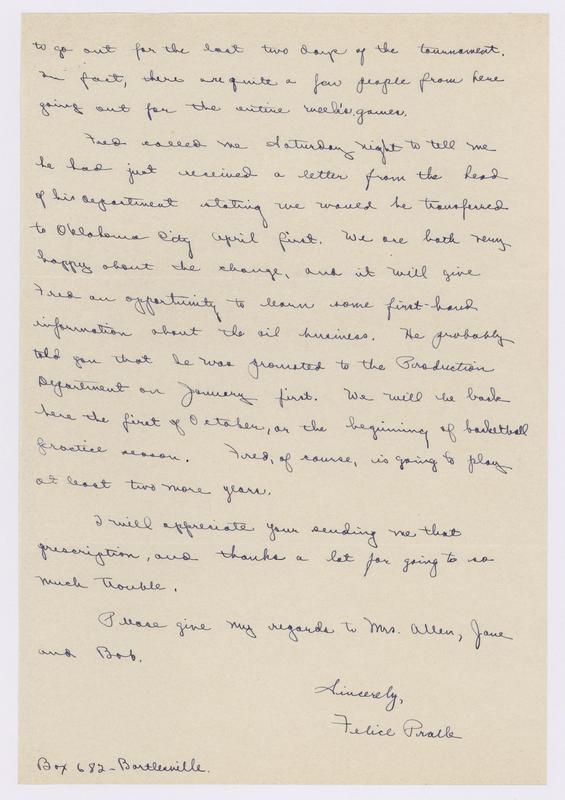 to go out for the last two days of the tournament.
In fact, there are quite a few people from here
going out for the entire week's games.
Fred called me Saturday night to tell me
he had just received a letter from the head
of his department stating we would be transferred
to Oklahoma City April first. We are both very
happy about the change, and it will give
Fred an opportunity to learn some first-hand
information about the oil business. He probably
told you that he was promoted to the Production
Department on January first. We will be back
here the first of October, or the beginning of basketball
practice season. Fred, of course, is going to play
at least two more years.
I will appreciate your sending me that
prescription, and thanks a lot for going to so
much trouble.
Please give my regards to Mrs. Allen, Jane
and Bob.
Sincerely,
Felice Pralle
Box 682 - Bartlesville.